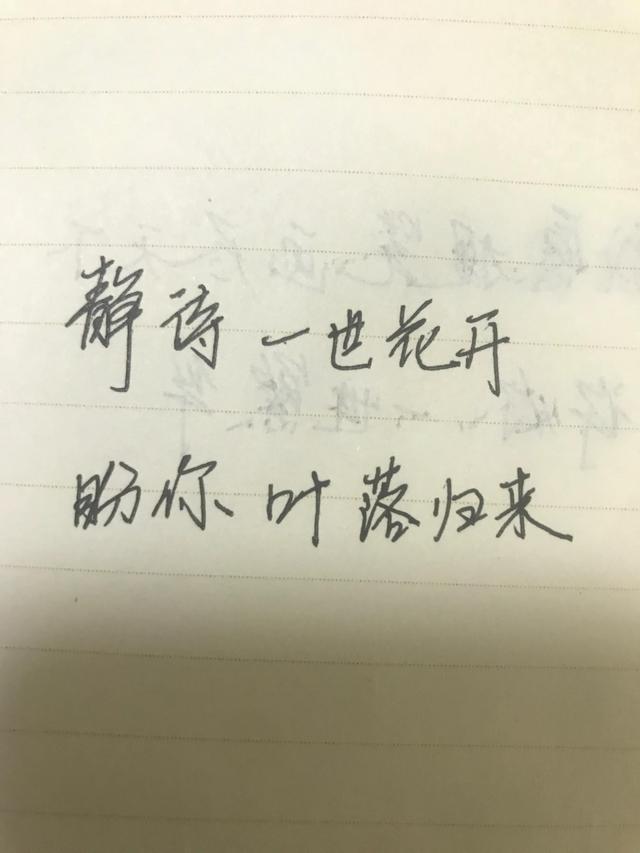 静诗一世花开
盼你叶落归来